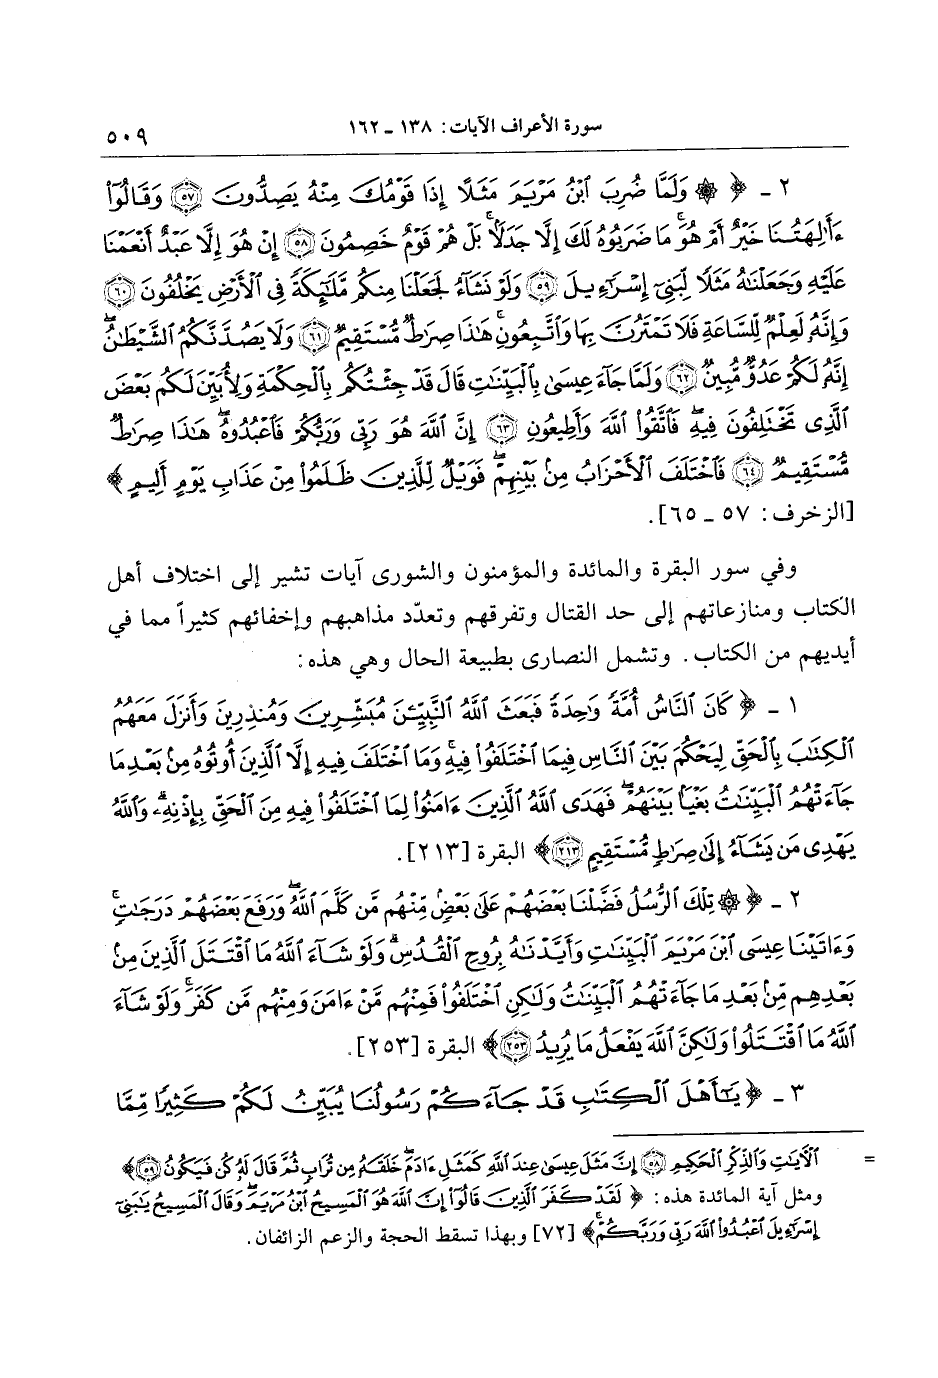 سورة الأعراف الآيات: ١٣٨ ـ ١٦٢
٥٠٩
٢ ـ ﴿ ۞ وَلَمَّا ضُرِبَ ٱبْنُ مَرْيَمَ مَثَلًا إِذَا قَوْمُكَ مِنْهُ يَصِدُّونَ ﴿٥٧﴾ وَقَالُوٓا۟
ءَأَٰلِهَتُنَا خَيْرٌ أَمْ هُوَ ۚ مَا ضَرَبُوهُ لَكَ إِلَّا جَدَلًۢا ۚ بَلْ هُمْ قَوْمٌ خَصِمُونَ ﴿٥٨﴾ إِنْ هُوَ إِلَّا عَبْدٌ أَنْعَمْنَا
عَلَيْهِ وَجَعَلْنَٰهُ مَثَلًا لِّبَنِىٓ إِسْرَٰٓءِيلَ ﴿٥٩﴾ وَلَوْ نَشَآءُ لَجَعَلْنَا مِنكُم مَّلَٰٓئِكَةً فِى ٱلْأَرْضِ يَخْلُفُونَ ﴿٦٠﴾
وَإِنَّهُۥ لَعِلْمٌ لِّلسَّاعَةِ فَلَا تَمْتَرُنَّ بِهَا وَٱتَّبِعُونِ ۚ هَٰذَا صِرَٰطٌ مُّسْتَقِيمٌ ﴿٦١﴾ وَلَا يَصُدَّنَّكُمُ ٱلشَّيْطَٰنُ ۖ
إِنَّهُۥ لَكُمْ عَدُوٌّ مُّبِينٌ ﴿٦٢﴾ وَلَمَّا جَآءَ عِيسَىٰ بِٱلْبَيِّنَٰتِ قَالَ قَدْ جِئْتُكُم بِٱلْحِكْمَةِ وَلِأُبَيِّنَ لَكُم بَعْضَ
ٱلَّذِى تَخْتَلِفُونَ فِيهِ ۖ فَٱتَّقُوا۟ ٱللَّهَ وَأَطِيعُونِ ﴿٦٣﴾ إِنَّ ٱللَّهَ هُوَ رَبِّى وَرَبُّكُمْ فَٱعْبُدُوهُ ۚ هَٰذَا صِرَٰطٌ
مُّسْتَقِيمٌ ﴿٦٤﴾ فَٱخْتَلَفَ ٱلْأَحْزَابُ مِنۢ بَيْنِهِمْ ۖ فَوَيْلٌ لِّلَّذِينَ ظَلَمُوا۟ مِنْ عَذَابِ يَوْمٍ أَلِيمٍ ﴾
[الزخرف: ٥٧ ـ ٦٥].
وفي سور البقرة والمائدة والمؤمنون والشورى آيات تشير إلى اختلاف أهل
الكتاب ومنازعاتهم إلى حد القتال وتفرقهم وتعدّد مذاهبهم وإخفائهم كثيراً مما في
أيديهم من الكتاب. وتشمل النصارى بطبيعة الحال وهي هذه:
١ ـ ﴿ كَانَ ٱلنَّاسُ أُمَّةً وَٰحِدَةً فَبَعَثَ ٱللَّهُ ٱلنَّبِيِّۦنَ مُبَشِّرِينَ وَمُنذِرِينَ وَأَنزَلَ مَعَهُمُ
ٱلْكِتَٰبَ بِٱلْحَقِّ لِيَحْكُمَ بَيْنَ ٱلنَّاسِ فِيمَا ٱخْتَلَفُوا۟ فِيهِ ۚ وَمَا ٱخْتَلَفَ فِيهِ إِلَّا ٱلَّذِينَ أُوتُوهُ مِنۢ بَعْدِ مَا
جَآءَتْهُمُ ٱلْبَيِّنَٰتُ بَغْيًۢا بَيْنَهُمْ ۖ فَهَدَى ٱللَّهُ ٱلَّذِينَ ءَامَنُوا۟ لِمَا ٱخْتَلَفُوا۟ فِيهِ مِنَ ٱلْحَقِّ بِإِذْنِهِۦ ۗ وَٱللَّهُ
يَهْدِى مَن يَشَآءُ إِلَىٰ صِرَٰطٍ مُّسْتَقِيمٍ ﴿٢١٣﴾ ﴾ البقرة [٢١٣].
٢ ـ ﴿ ۞ تِلْكَ ٱلرُّسُلُ فَضَّلْنَا بَعْضَهُمْ عَلَىٰ بَعْضٍ مِّنْهُم مَّن كَلَّمَ ٱللَّهُ ۖ وَرَفَعَ بَعْضَهُمْ دَرَجَٰتٍ ۚ
وَءَاتَيْنَا عِيسَى ٱبْنَ مَرْيَمَ ٱلْبَيِّنَٰتِ وَأَيَّدْنَٰهُ بِرُوحِ ٱلْقُدُسِ ۗ وَلَوْ شَآءَ ٱللَّهُ مَا ٱقْتَتَلَ ٱلَّذِينَ مِنۢ
بَعْدِهِم مِّنۢ بَعْدِ مَا جَآءَتْهُمُ ٱلْبَيِّنَٰتُ وَلَٰكِنِ ٱخْتَلَفُوا۟ فَمِنْهُم مَّنْ ءَامَنَ وَمِنْهُم مَّن كَفَرَ ۚ وَلَوْ شَآءَ
ٱللَّهُ مَا ٱقْتَتَلُوا۟ وَلَٰكِنَّ ٱللَّهَ يَفْعَلُ مَا يُرِيدُ ﴿٢٥٣﴾ ﴾ البقرة [٢٥٣].
٣ ـ ﴿ يَٰٓأَهْلَ ٱلْكِتَٰبِ قَدْ جَآءَكُمْ رَسُولُنَا يُبَيِّنُ لَكُمْ كَثِيرًا مِّمَّا
= ٱلْءَايَٰتِ وَٱلذِّكْرِ ٱلْحَكِيمِ ﴿٥٨﴾ إِنَّ مَثَلَ عِيسَىٰ عِندَ ٱللَّهِ كَمَثَلِ ءَادَمَ ۖ خَلَقَهُۥ مِن تُرَابٍ ثُمَّ قَالَ لَهُۥ كُن فَيَكُونُ ﴿٥٩﴾ ﴾
ومثل آية المائدة هذه: ﴿ لَقَدْ كَفَرَ ٱلَّذِينَ قَالُوٓا۟ إِنَّ ٱللَّهَ هُوَ ٱلْمَسِيحُ ٱبْنُ مَرْيَمَ ۖ وَقَالَ ٱلْمَسِيحُ يَٰبَنِىٓ
إِسْرَٰٓءِيلَ ٱعْبُدُوا۟ ٱللَّهَ رَبِّى وَرَبَّكُمْ ۖ ﴾ [٧٢] وبهذا تسقط الحجة والزعم الزائفان.